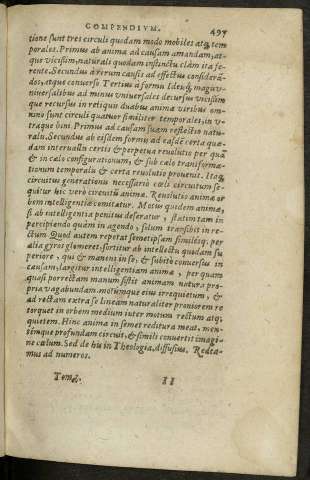 COMPENDIVM. 497
tione sunt tres circuli quodam modo mobiles atq; tem
porales. Primus ab anima ad causam amandam, at-
que vicissim, naturali quodam instinctu clàm ita fe-
rente. Secundus à rerum causis ad effectus considerã-
dos, atque conuerso Tertius à formu magis v-
niuersalibus ad minus vniuersales decursus vicissim
que recursus in reliquis duabus anima viribus om-
nino sunt circuli quatuor similiter temporales, in v-
traque bini. Primus ad causam suam reflectio natu-
ralu. Secundus ab eisdem formu ad easdē certa qua-
dam interuallu certis & perpetua reuolutio per quã
& in cælo configurationum, & sub cælo transforma-
tionum temporalu & certa reuolutio prouenit. Itaq;
circuitus generationu necessariò cæli circuitum se-
quitur hic verò circuitũ animæ. Reuolutio animæ or
bem intelligentiæ comitatur. Motus quidem animæ,
si ab intelligentia penitus deseratur, statim tam in
percipiendo quàm in agendo, solum transibit in re-
ctum Quod autem repetat semetipsam similiq; per
alia gyros glomeret, sortitur ab intellectu quodam su
periore, qui & manens in se, & subitò conuersus in
causam, largitur intelligentiam animæ, per quam
quasi porrectam manum sistit animam natura pro-
pria vagabundam. motumque eius irrequietum, &
ad rectam extra se lineam naturaliter proniorem re
torquet in orbem medium inter motum rectum atq;
quietem. Hinc anima in semet reditura meat, men-
temque profundam circuit, & simili conuertit imagi-
ne cælum. Sed de his in Theologia, diffusius. Redea-
mus ad numeros.
II